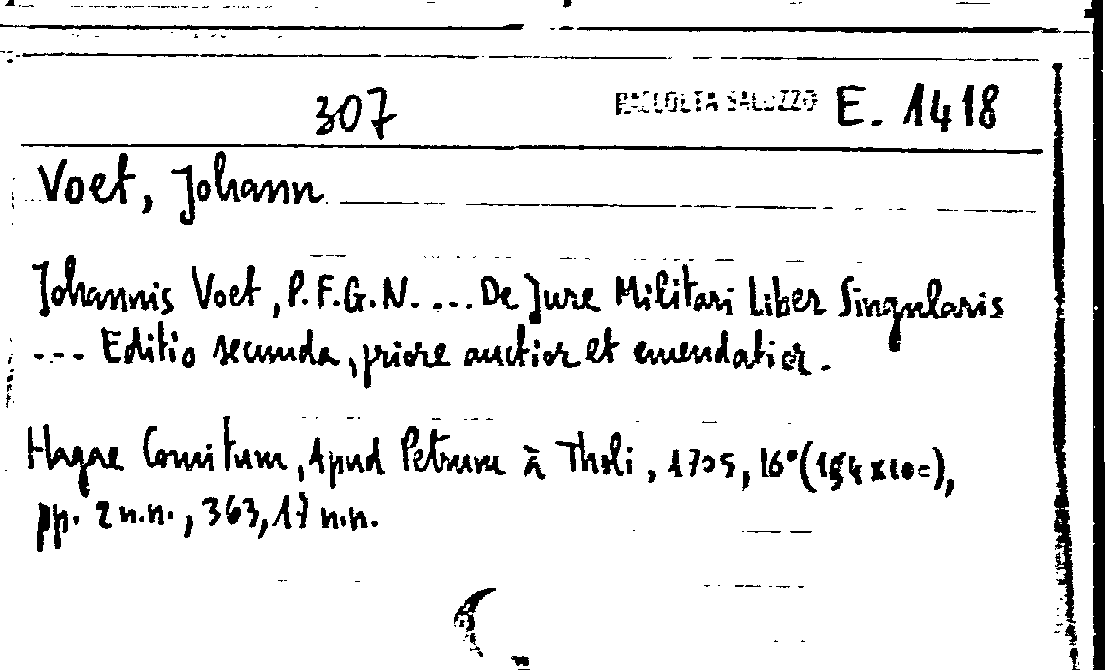 307 RACCOLTA SALUZZO E. 1418
Voet, Johann
Johannis Voet, P.F.G.N. ... De Jure Militari Liber Singularis
--- Editio secunda, priore auctior et emendatior.
Hagae Comitum, Apud Petrum à Tholi, 1705, 16° (154x100),
pp. 2 n.n., 363, 17 n.n.